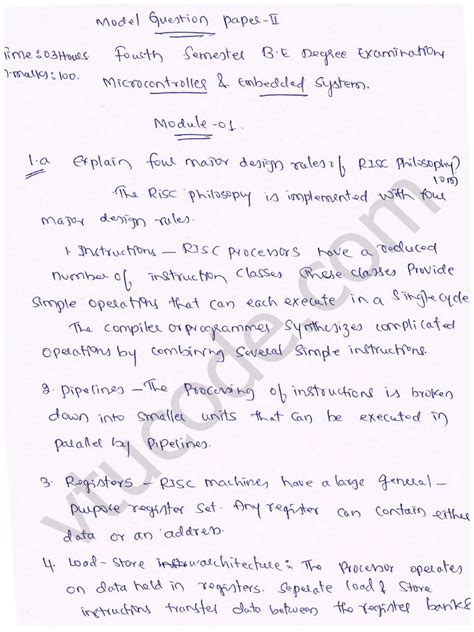 Model Question Paper-II
Time: 03 Hours Fourth Semester B.E Degree Examination
Marks: 100. Microcontroller & Embedded System.
Module-01.
1.a Explain four major design rules of RISC Philosophy?
The RISC philosophy is implemented with four
major design rules.
1 Instructions – RISC processors have a reduced
number of instruction classes These classes Provide
Simple operations that can each execute in a Single cycle
The compiler or programmer Synthesizes complicated
operations by combining Several Simple instructions.
2. Pipelines – The Processing of instructions is broken
down into smaller units that can be executed in
parallel by Pipelines.
3. Registers – RISC machines have a large general –
purpose register set. Any register can contain either
data or an address.
4. Load-Store architecture: The Processor operates
on data held in registers. Seperate load & Store
instructions transfer data between the register bank &
vtucode.com